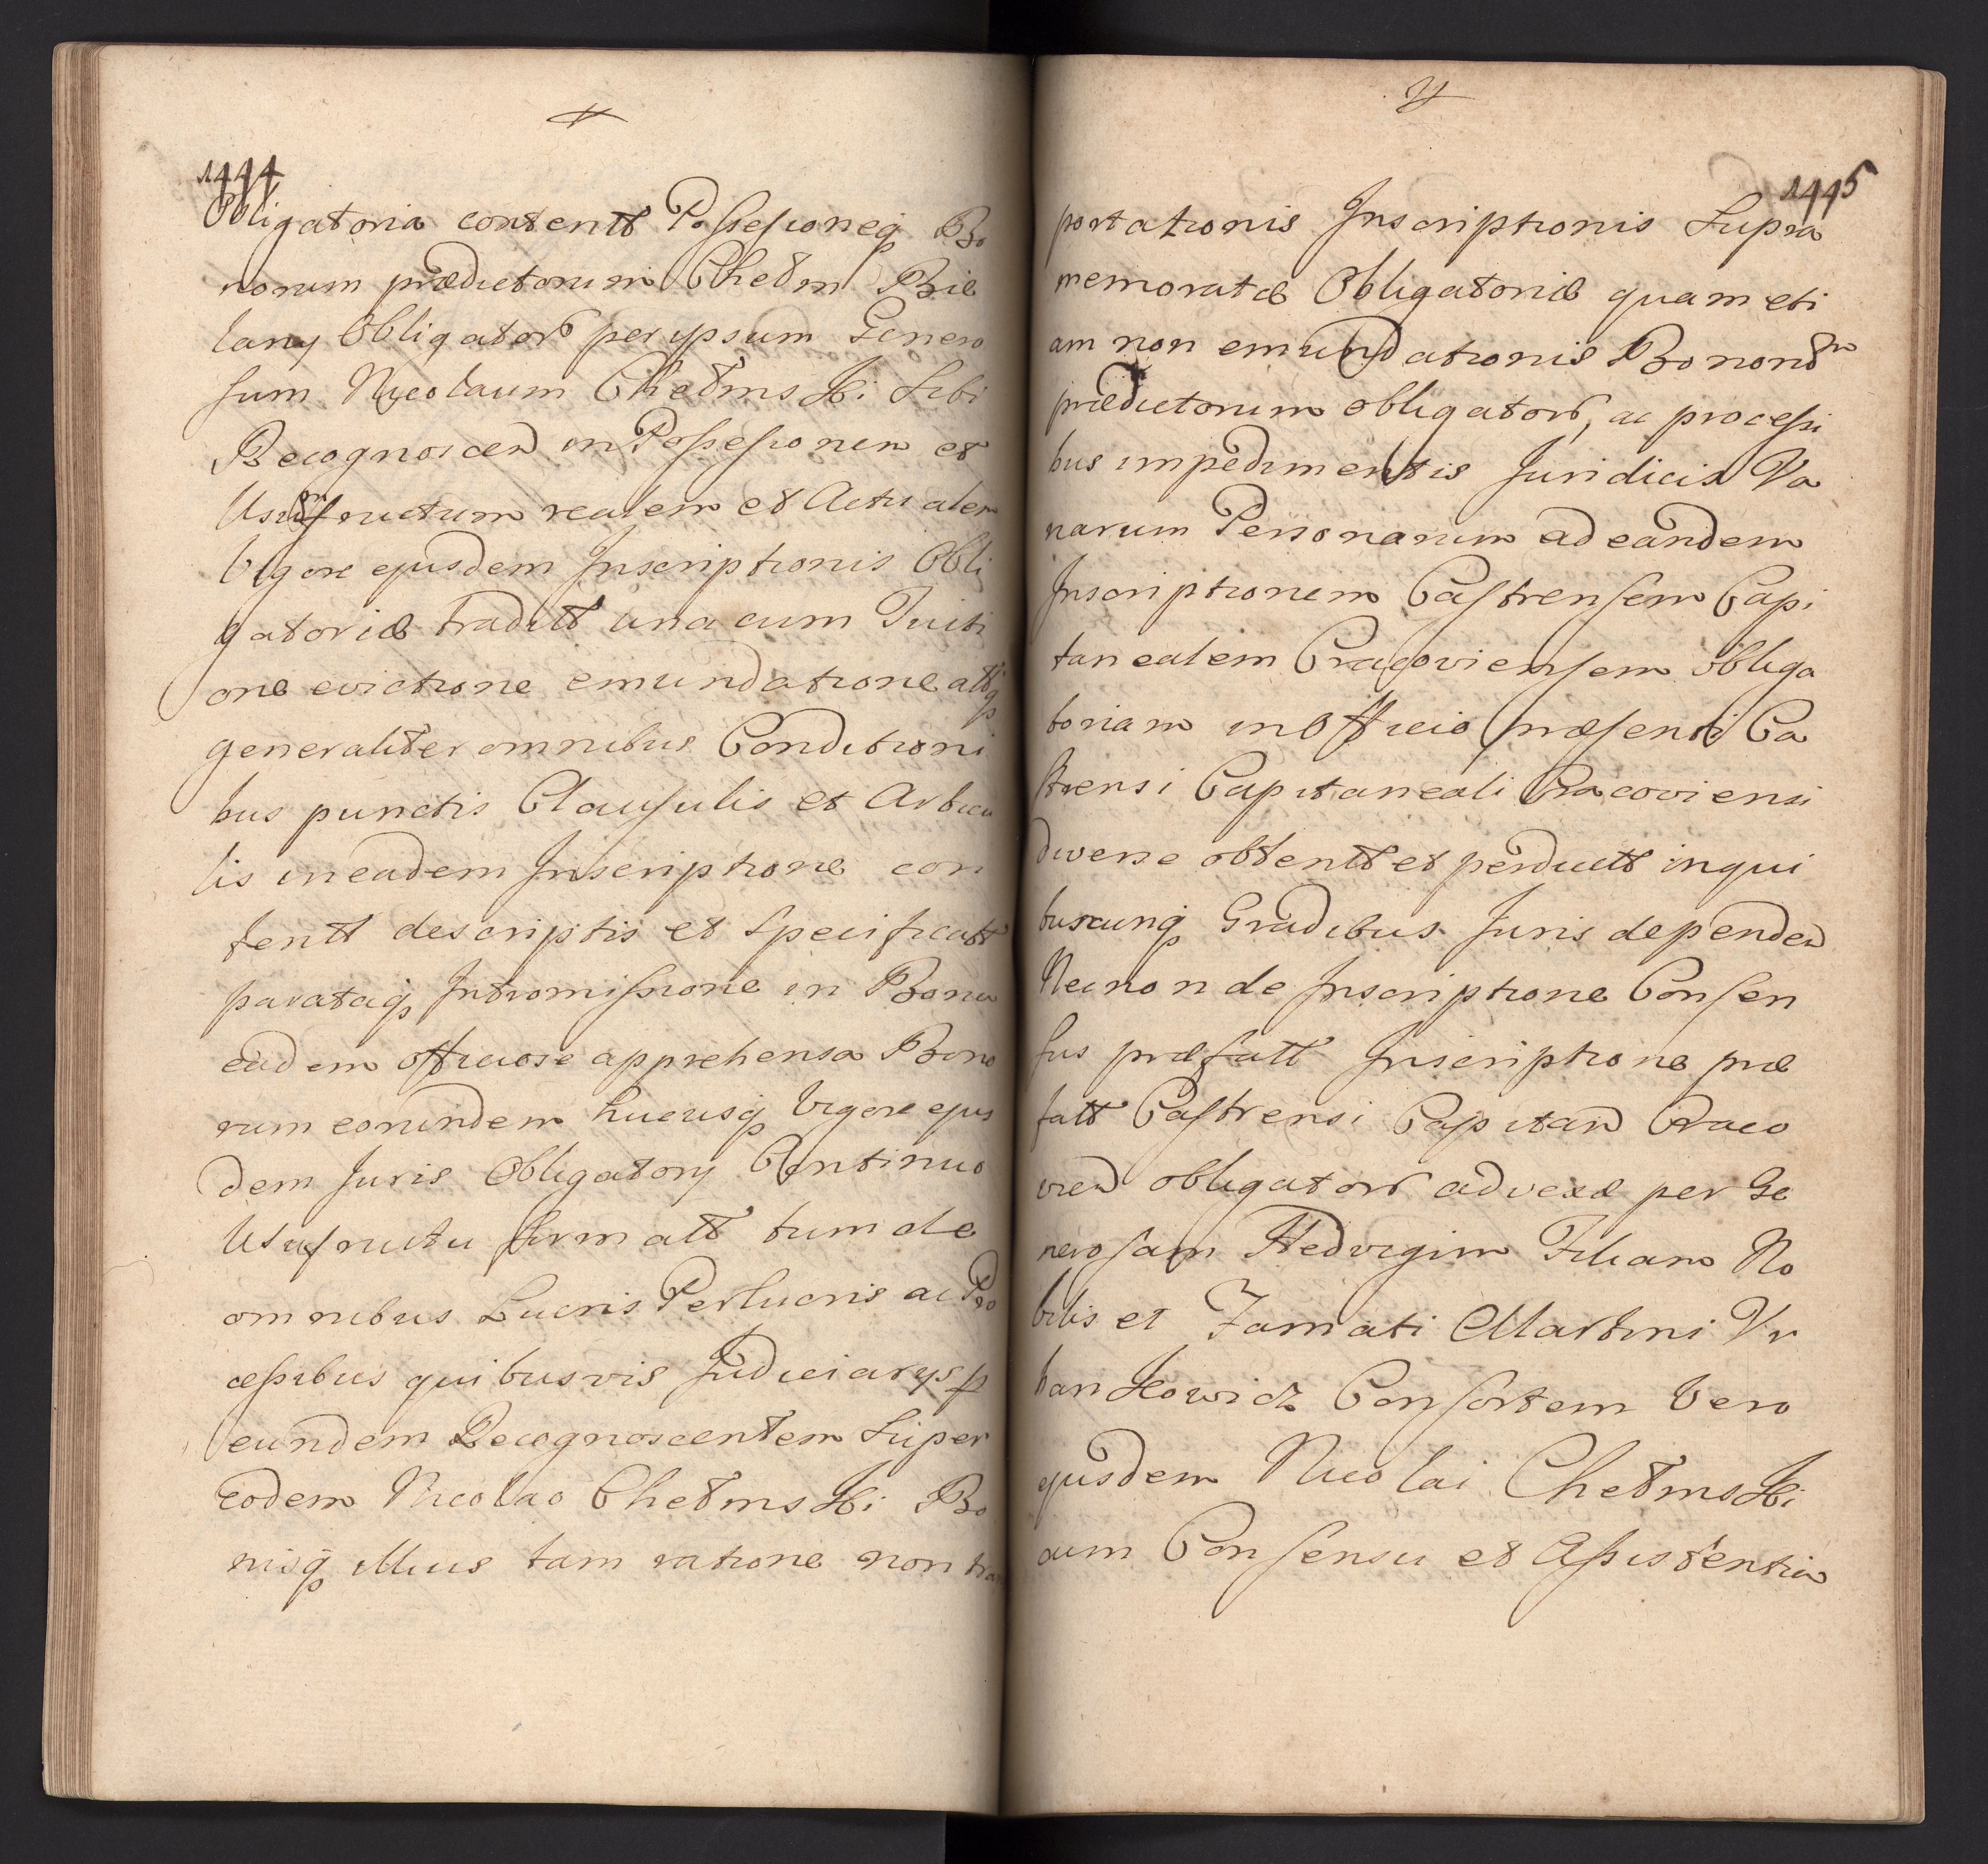 1444
Obligatoria contentt Possessioneq Bo
norum prædictorum Chełm Bie
lany Obligator per ipsum Genero
sum Nicolaum Chełmski Sibi
Recognoscen in Possessionem et
Usumfructum realem et Actualem
Vigore ejusdem Inscriptionis Obli
gatoriæ traditt una cum Tuiti
one evictione emundatione attq
generaliter omnibus Conditioni
bus punctis Clausulis et Articu
lis in eadem Inscriptione con
tentt descriptis et Specificatt
parataq Intromissione in Bona
eadem officiose apprehensa Bono
rum eorundem hucusq Vigore ejus
dem Juris Obligatorij Continuo
Usufructu firmatt tum de
omnibus Lucris Perlucris ac Pro
cessibus quibusvis Judiciarijs p
eundem Recognoscentem Super
eodem Nicolao Chełmski Bo
nisq Illius tam ratione non tran
1445
portationis Inscriptionis Supra
memoratæ Obligatoriæ quam eti
am non emundationis Bonorum
prædictorum obligator, ac processi
bus impedimentis Juridicis Va
riarum Personarum ad eandem
Inscriptionem Castrensem Capi
tanealem Cracoviensem obliga
toriam in Officio præsenti Ca
strensi Capitaneali Cracoviensi
diverse obtentt et perductt in qui
buscunq Gradibus Juris dependen
Necnon de Inscriptione Consen
sus præfatt Inscriptione præ
fatt Castrensi Capitan Craco
vien obligator advexæ per Ge
nerosam Hedvigim Filiam No
bilis et Famati Martini Ur
bankowicz Consortem Vero
ejusdem Nicolai Chełmski
cum Consensu et Assistentia